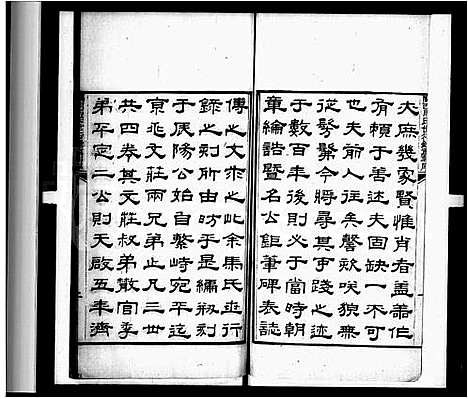 夫庶幾象賢惟肖者蓋善作
有賴于善述夫固缺一不可
也夫前人往矣謦欬咲貌無
從髣髴今將尋其事踐之迹
于數百年後則必于當時朝
章綸誥暨名公鉅筆碑表誌
傳之文求之此余馬氏世行
錄之刻所由昉于是編剏刻
于 陽公始自繫峙宛平迄
京兆文莊兩兄弟止凡三世
共四卷其文莊叔弟散官季
弟平定二公則天啟五年濟